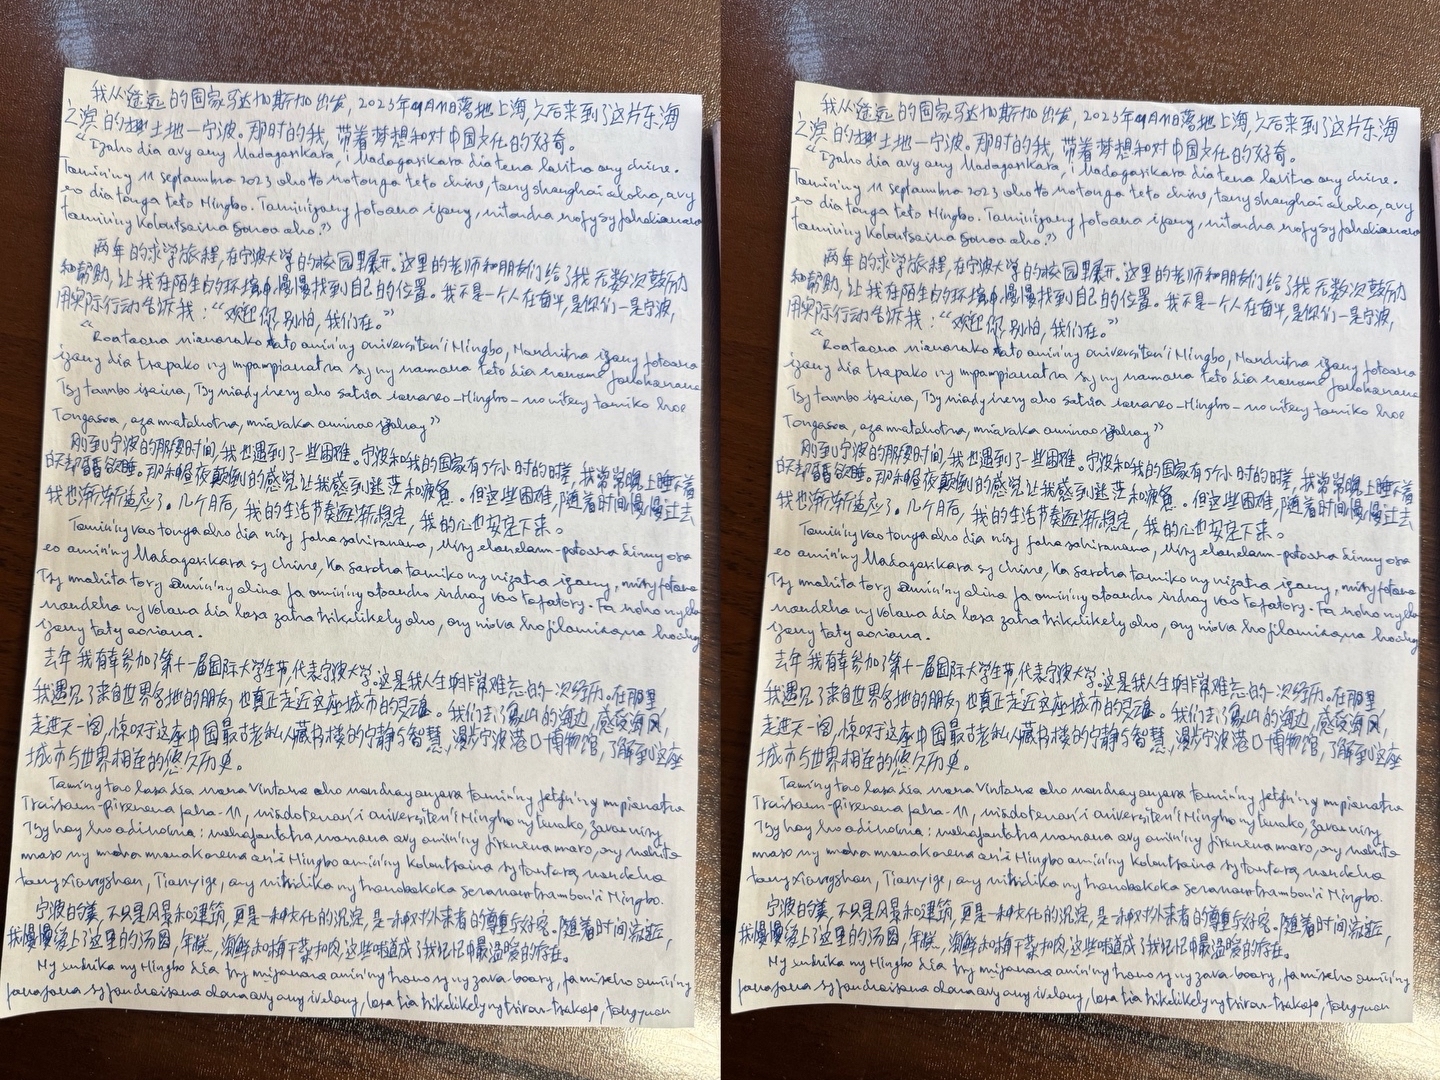 我从遥远的国家马达加斯加出发，2023年9月11日落地上海，之后来到了这片东海
之滨的土地—宁波。那时的我，带着梦想和对中国文化的好奇。
"Izaho dia avy any Madagasikara, i Madagasikara dia tena lavitra any chine.
Tamin'ny 11 septambra 2023 aho no tonga teto chine, tany shanghai aloha, avy
eo dia tonga teto Ningbo. Tamin'izany fotoana izany, nitondra nofy sy fahalianana
tamin'ny kolontsaina sinoa aho."
两年的求学旅程，在宁波大学的校园里展开。这里的老师和朋友们给了我无数次鼓励
和帮助，让我在陌生的环境中慢慢找到自己的位置。我不是一个人在奋斗，是你们—是宁波，
用实际行动告诉我："欢迎你，别怕，我们在。"
"Roa taona nianarako tato amin'ny oniversiten'i Ningbo, Nandritra izany fotoana
izany dia ny mpampianatra sy ny namana teto dia nanome fankaherezana
Tsy tambo isaina, Tsy niady irery aho satria ianareo-Ningbo-no niteny tamiko hoe
Tongasoa, aza matahotra, miaraka aminao izahay"
刚到宁波的那段时间，我也遇到了一些困难。宁波和我的国家有5个小时的时差，我常常晚上睡不着
白天却昏昏欲睡。那种昼夜颠倒的感觉让我感到迷茫和疲惫。但这些困难，随着时间慢慢过去
我也渐渐适应了。几个月后，我的生活节奏逐渐稳定，我的心也安定下来。
Tamin'ny vao tonga aho dia nisy fahasahiranana, Misy elanelam-potoana dimy ora
eo amin'ny Madagasikara sy chine, ka sarotra tamiko ny nizatra izany, nisy fotoana
Tsy mahita tory amin'ny alina fa amin'ny atoandro indray vao ta-fatory. Fa noho ny
nandeha ny volana dia lasa zatra tsikelikely aho, ary
izany taty aoriana.
去年我有幸参加了第十一届国际大学生节，代表宁波大学。这是我人生中非常难忘的一次经历。在那里
我遇见了来自世界各地的朋友，也真正走近这座城市的灵魂。我们去了象山的海边，感受海风，
走进天一阁，惊叹于这座中国最古老私人藏书楼的宁静与智慧，漫步宁波港口博物馆，了解到这座
城市与世界相连的悠久历史。
Tamin'ny taon lasa dia nana vintana aho nandray anjara tamin'ny fetin'ny mpianatra
Iraisam-pirenena faha-11, nisolotena n'i oniversiten'i Ningbo ny tenako, zavatra iray
Tsy hay hadinoina: nahafantatra namana avy amin'ny firenena maro, ary nahita
maso ny mana-kanena an'i Ningbo amin'ny kolontsaina sy tantara, nandeha
tany Xiangshan, Tianyige, ary nitsidika ny tranobakoka seranan-tsambon'i Ningbo.
宁波的美，不只是风景和建筑，更是一种文化的沉淀，是一种对外来者的尊重与好客。随着时间流逝，
我慢慢爱上了这里的汤圆，年糕，海鲜和梅干菜扣肉，这些味道成了我记忆中最温暖的存在。
Ny hatsaran'ny Ningbo dia tsy mijanona amin'ny trano sy ny zava-boary, fa miseho amin'ny
fanajana sy fandraisana olona avy any ivelany, lasa tia tsikelikely ny tsiron-tsakafo, tangyuan